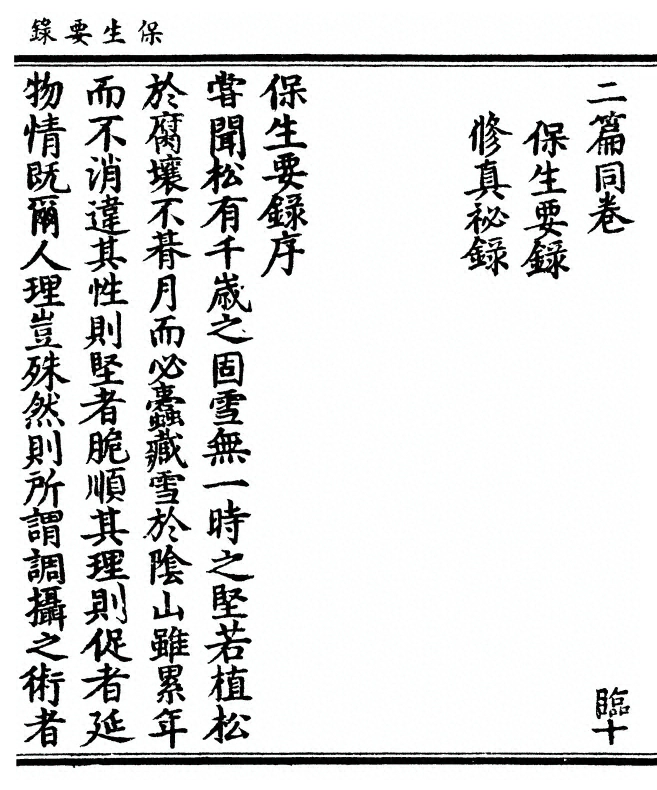 保生要錄
二篇同卷
臨十
保生要錄
修真祕錄
保生要錄序
嘗聞松有千歲之固雪無一時之堅若植松
於腐壤不朞月而必蠹藏雪於陰山雖累年
而不消違其性則堅者脆順其理則促者延
物情既爾人理豈殊然則所謂調攝之術者